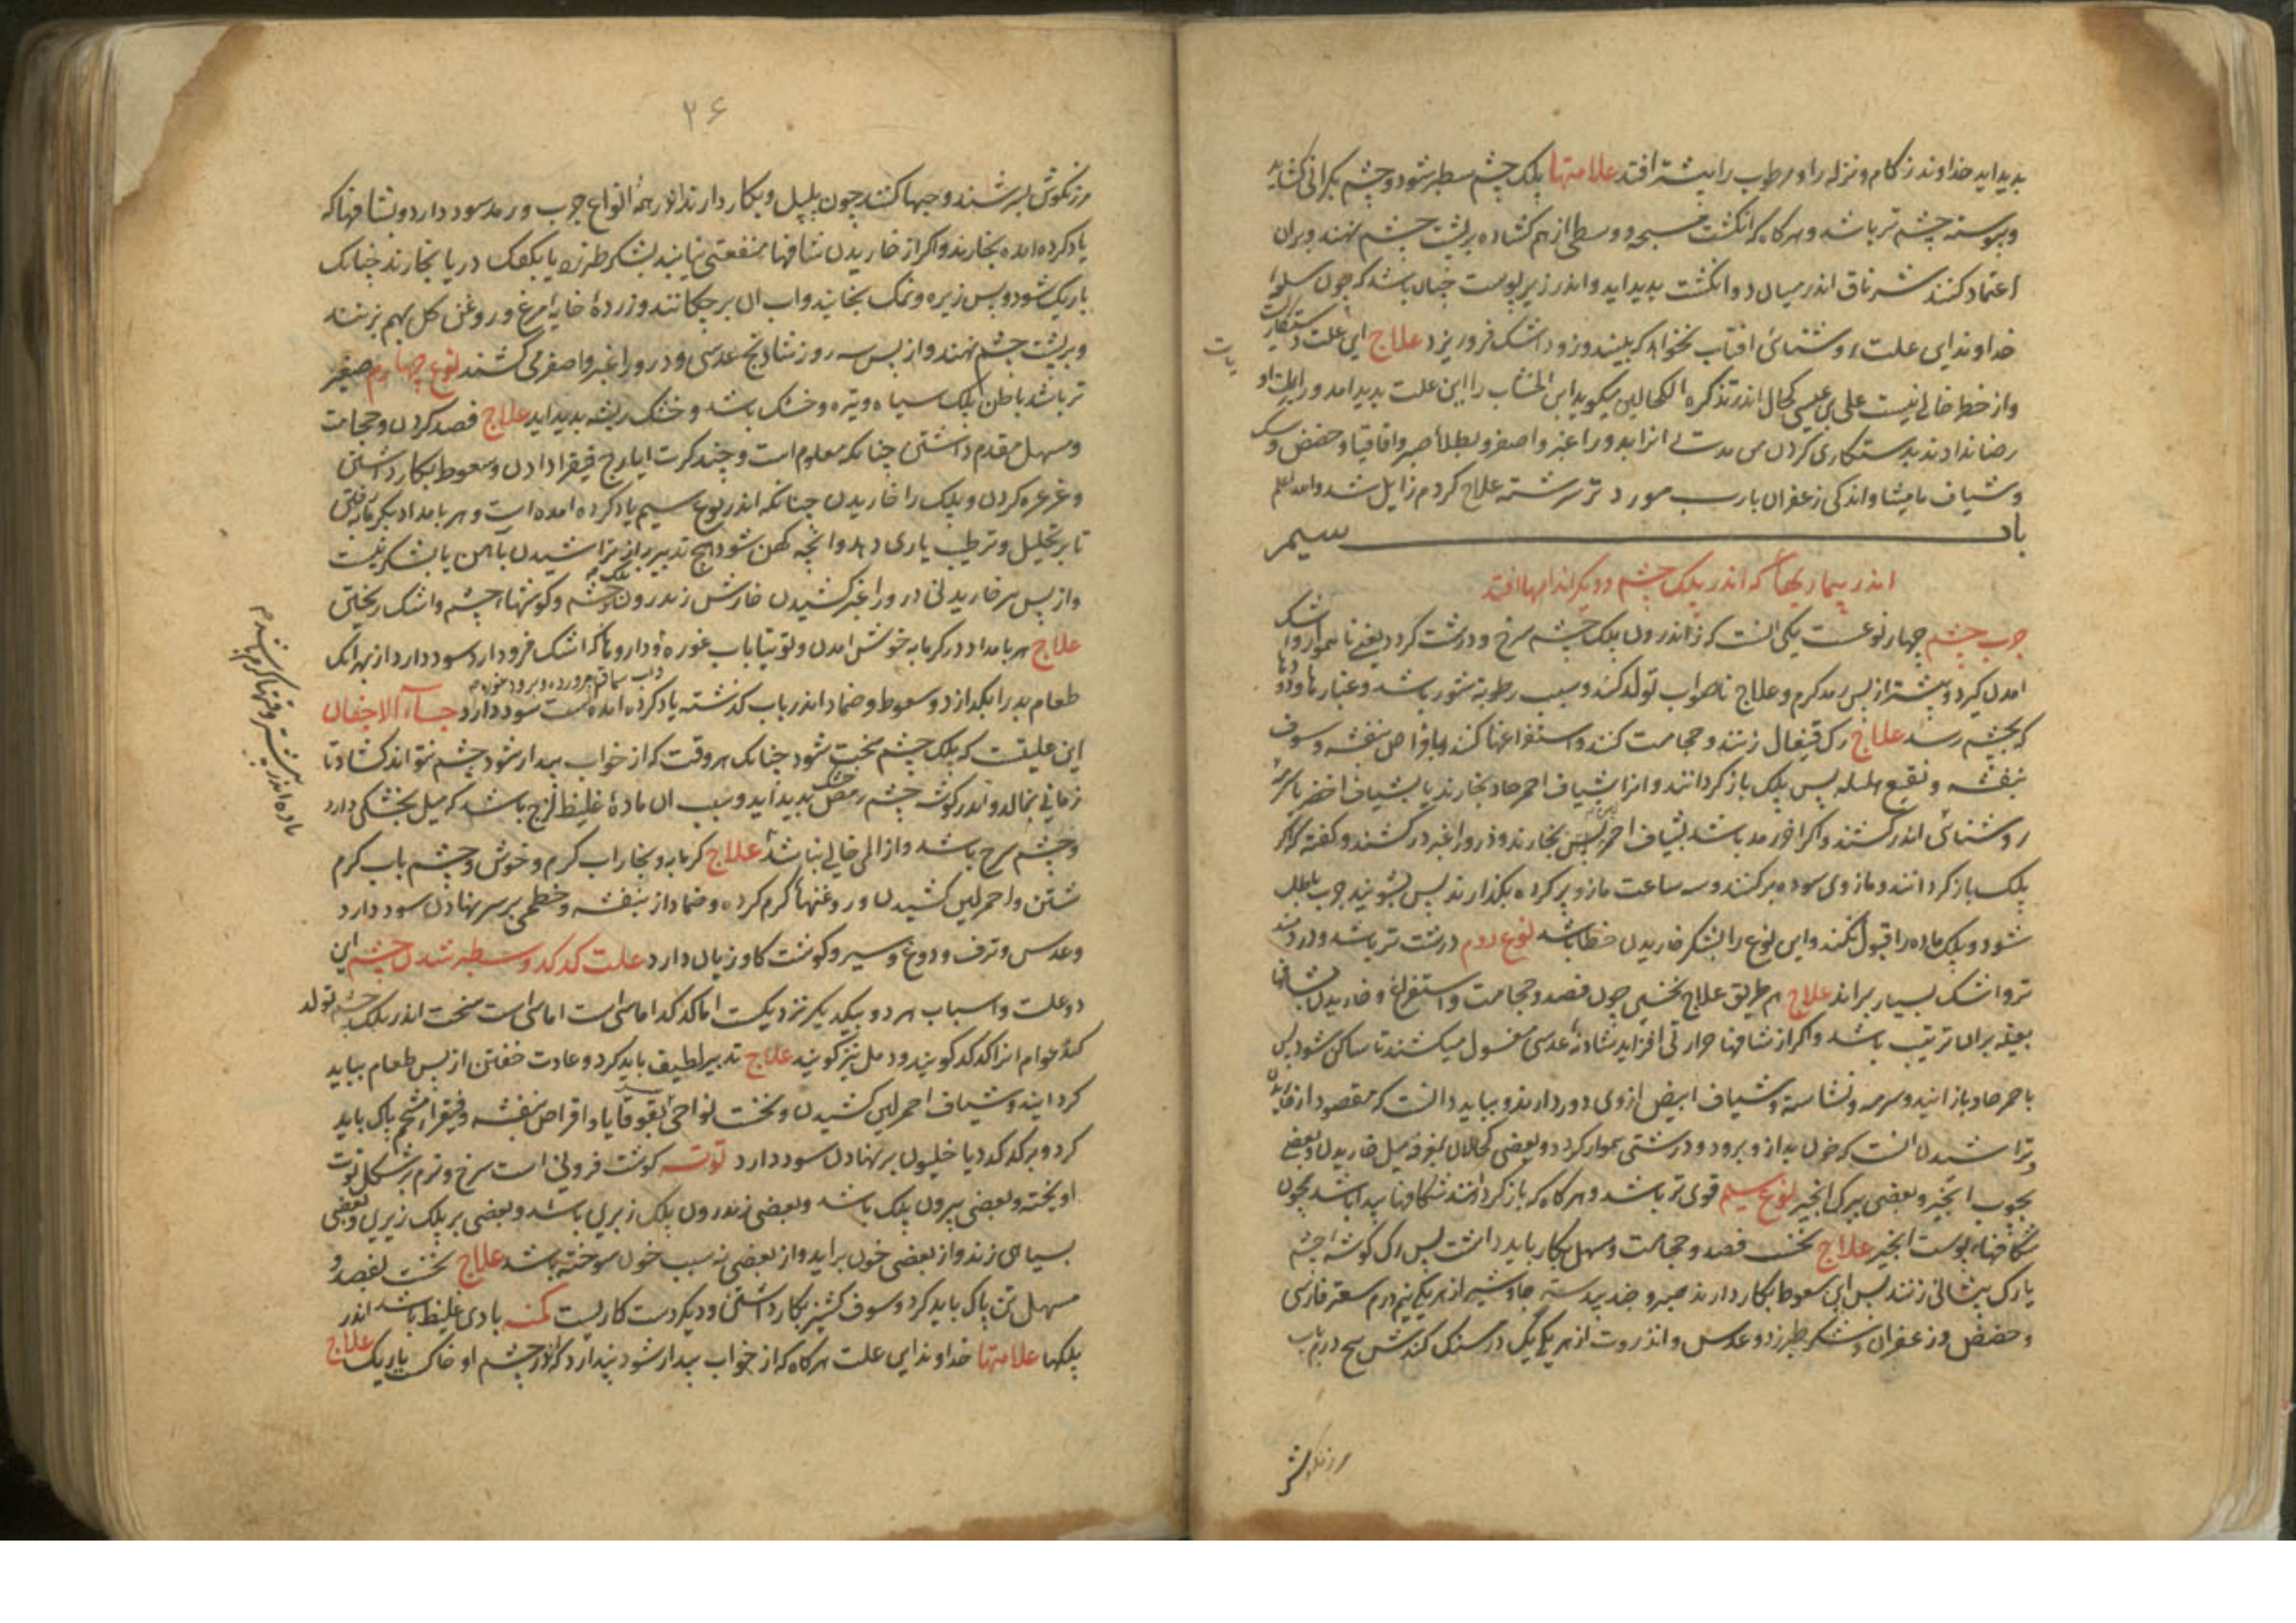 بدید اید خداوند زکام و نزله را و مرطوب را بیشتر افتد علامتها پلک چشم سطبر شود و چشم بگرانی کشاید
و پیوسته چشم تر باشد و هرکاه که انکشت مسبحه و وسطی از هم کشاده بر پشت چشم نهند و بران
اعتماد کنند شرناق اندر میان دو انکشت بدید اید و اندر زیر پوست چنان باشد که چون سلع
خداوند این علت روشنائی افتاب نخواهد که بیند و زود اشک فرو ریزد علاج این علت دستکاریست
و از خطر خالی نیست علی بن عیسی کحال اندر تذکره الکحالین میکوید ابن الخشاب را این علت بدید امد و
رضا نداد بدستکاری کردن من مدتی انرا بدرور اغبر و اصفر و بطلا صبر و اقاقیا و حضض و
و شیاف مامیثا و اندکی زعفران بآب مورد تر سرشته علاج کردم زایل شد والله اعلم
باب سیم
اندر بیماریها که اندر پلک چشم و دیکر اندامها افتد
جرب چشم چهار نوعست یکی انست که اندرون پلک چشم سرخ و درشت کردد یعنی ناهموار و اشک
امدن کیرد و بیشتر از پس رمد کرم و علاج ناصواب تولد کند و سبب رطوبة شور باشد و غبارها و دودها
که بچشم رسد علاج رک قیفال زنند و حجامت کنند و استفراغها کنند باقراص بنفشه و سفوف
بنفشه و نقیع هلیله پس پلک باز کردانند و انرا بشیاف احمر حاد بخارند یا بشیاف اخضر یا
روشنائی اندر کشند و اکر اخر رمد باشد بشیاف احمر لین بخارند و ذرور اغبر در کشند و کفته اند که اکر
پلک باز کردانند و مازوی سوده بر کنند و سه ساعت مازو بر کرده بکذارند پس بشویند جرب باطل
شود و پلک ماده را قبول نکند و این نوع را بشکر خاریدن خطا باشد نوع دوم درشت تر باشد و دردمند
تر و اشک بسیار براند علاج هم طریق علاج نخستین چون فصد و حجامت و استفراغ و خاریدن بشافها
بعینه بران ترتیب باشد و اکر از شافها حرارتی افزاید شادنه عدسی مغسول میکشند تا ساکن شود پس
باحمر حاد باز ایند و سرمه و نشاسته و شیاف ابیض از وی دور دارند و بباید دانست که مقصود از خاریدن
و تراشیدن انست که خون بد از و برود و درشتی هموار کردد و بعضی کحالان بمغرفه میل خاریدن و بعضی
بچوب انجیر و بعضی ببرک انجیر نوع سیم قوی تر باشد و هرکاه که باز کردانند شکافها پیدا باشد چون
شکافهاء پوست انجیر علاج نخست فصد و حجامت و مسهل بکار باید داشت پس رک کوشه چشم
یا رک پیشانی زنند پس این سعوط بکار دارند صبر و جندبیدستر جاوشیر از هر یکی نیم درم سعتر فارسی
و حضض و زعفران و شکر طبرزد و عدس و انزروت از هر یکی یک درمسنک کندش پنج درم بآب
مرزنکوش
۲۶
مرزنکوش بسرشند و حبها کنند چون پلپل و بکار دارند اندر همه انواع جرب و رمد سود دارد و بشافها که
یاد کرده امده بخارند و اکر از خاریدن شافها منفعتی نیابند بشکر طبرزد یا بکفک دریا بخارند چنانک
باریک شود و پس زیره و نمک بخایند و اب ان بر چکانند و زرده خایه مرغ و روغن کل بهم بزنند
و بر پشت چشم نهند و از پس سه روز شادنج عدسی و ذرور اغبر و اصفر می کشند نوع چهارم صعب
تر باشد باطن پلک سیاه و تیره و خشک باشد و خشک ریشه بدید اید علاج فصد کردن و حجامت
و مسهل مقدم داشتن چنانکه معلوم است و چند کرت ایارج فیقرا دادن و سعوط بکار داشتن
و غرغره کردن و پلک را خاریدن چنانکه اندر نوع سیم یاد کرده امده است و هر بامداد بکرمابه رفتن
تا بر تحلیل و ترطیب یاری دهد و انچه کهن شود هیچ تدبیر برای تراشیدن بآهن یا بشکر نیست
و از پس هر خاریدنی درور اغبر کشیدن خارش اندرون پلک چشم و کوشهاء چشم و اشک ریختن
علاج هر بامداد در کرمابه خوش امدن و توتیا باب غوره و داروها که اشک فرود ارد سود دارد از بهر انک
و اب سماق پرورده و برود غوره
طعام بد را بکدازد و سعوط و ضماد اندر باب کذشته یاد کرده امده است سود دارد جساء الاجفان
این علتیست که پلک چشم سخت شود چنانک هر وقت که از خواب بیدار شود چشم نتواند کشاد تا
زمانی بمالد و اندر کوشه چشم رمص خشک بدید اید و سبب ان ماده غلیظ لزج باشد که میل بخشکی دارد
و چشم سرخ باشد و از الم خالی نباشد علاج کرمابه و بخار اب کرم و خوش و چشم باب کرم
شستن و احمر لین کشیدن و روغنها کرم کرده و ضماد از بنفشه و خطمی بر سر نهادن سود دارد
و عدس و ترف و دوغ و سیر و کوشت کاو زیان دارد علت کدکد و سطبر شدن چشم این
دو علت و اسباب هر دو بیکدیکر نزدیکست اما کدکد اماسی است اماسی است سخت اندر پلک چشم تولد
کند عوام انرا کدکد کویند و دمل نیز کویند علاج تدبیر لطیف باید کرد و عادت خفتن از پس طعام بباید
کردانید و شیاف احمر لین کشیدن و نخست نواحی بقوقایا و اقراص بنفشه و فیقرا شحم پاک باید
کرد و بر کدکد دیاخلیون بر نهادن سود دارد توته کوشت فزونی است سرخ و نرم بر شکل توت
اویخته و بعضی بیرون پلک باشد و بعضی اندرون پلک زبرین باشد و بعضی بر پلک زیرین و بعضی
بسیاهی زند و از بعضی خون براید و از بعضی نه سبب خون سوخته باشد علاج نخست بفصد و
مسهل تن پاک باید کرد و سفوف کشنیز بکار داشتن و دیکر دستکاریست کمنه بادی غلیظ باشد اندر
پلکها علامتها خداوند این علت هرکاه که از خواب بیدار شود پندارد که اندر چشم او خاک باریک علاج
ماده اندر بیشتر وقتها کرم باشد